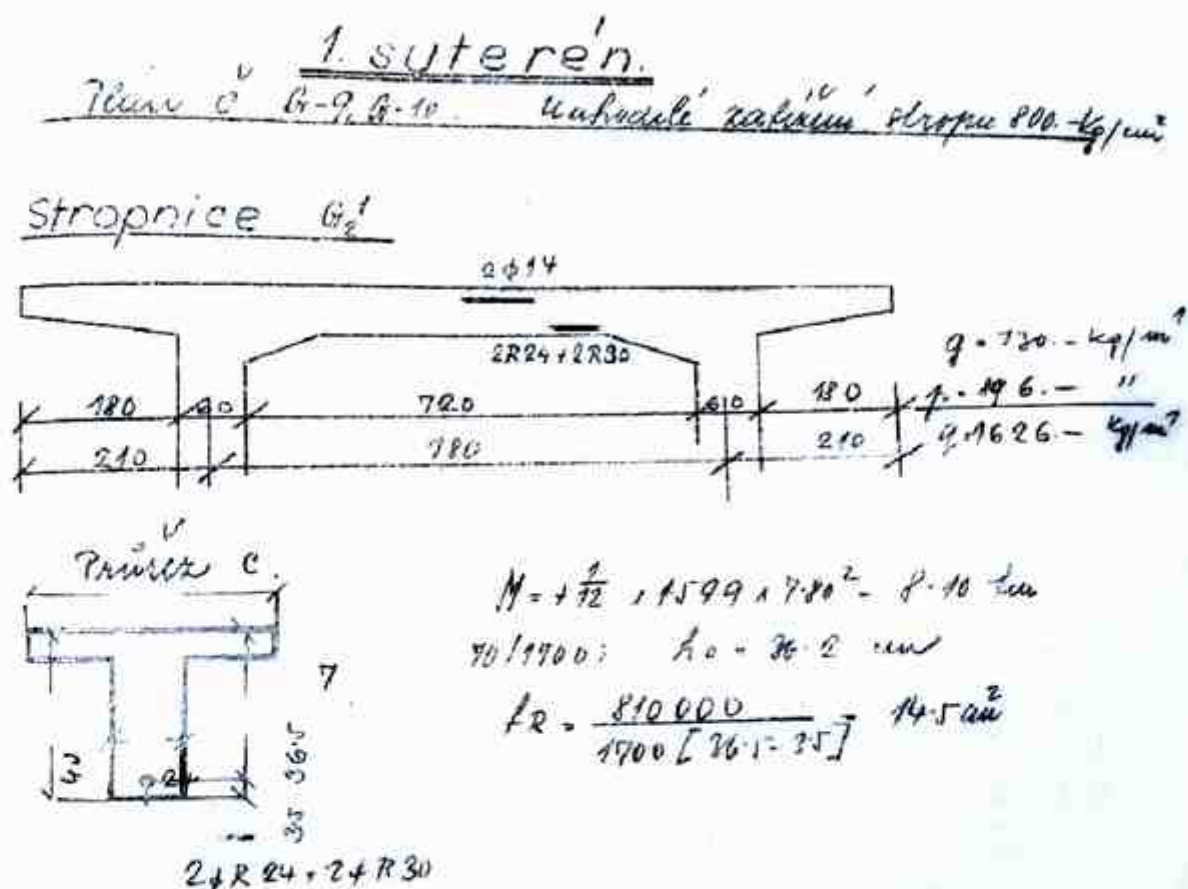 1. suterén.
Plán č G-9, G-10. Nahodilé zatížení stropu 800.-kg/m²
Stropnice G₂¹
2ϕ14
2R24+2R30
g = 730.- kg/m¹
180 60 720 60 180 p. = 896.- "
210 780 210 q. 1626.- kg/m¹
Průřez C.
7
40
36.5
3.5
2ϕR24 + 2ϕR30
M = + 1/12 x 1599 x 7.80² = 8.10 tm
70/1700: h₀ = 36.2 cm
fR = 810000 / 1700 [36.5 - 3.5] = 14.5 cm²